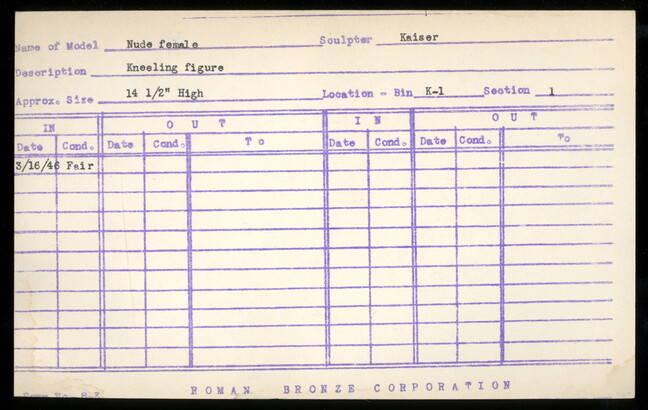 Name of Model Nude female Sculptor Kaiser
Description Kneeling figure
Approx. Size 14 1/2" High Location - Bin K-1 Section 1
IN OUT IN OUT
Date Cond. Date Cond. To Date Cond. Date Cond. To
3/16/46 Fair
ROMAN BRONZE CORPORATION